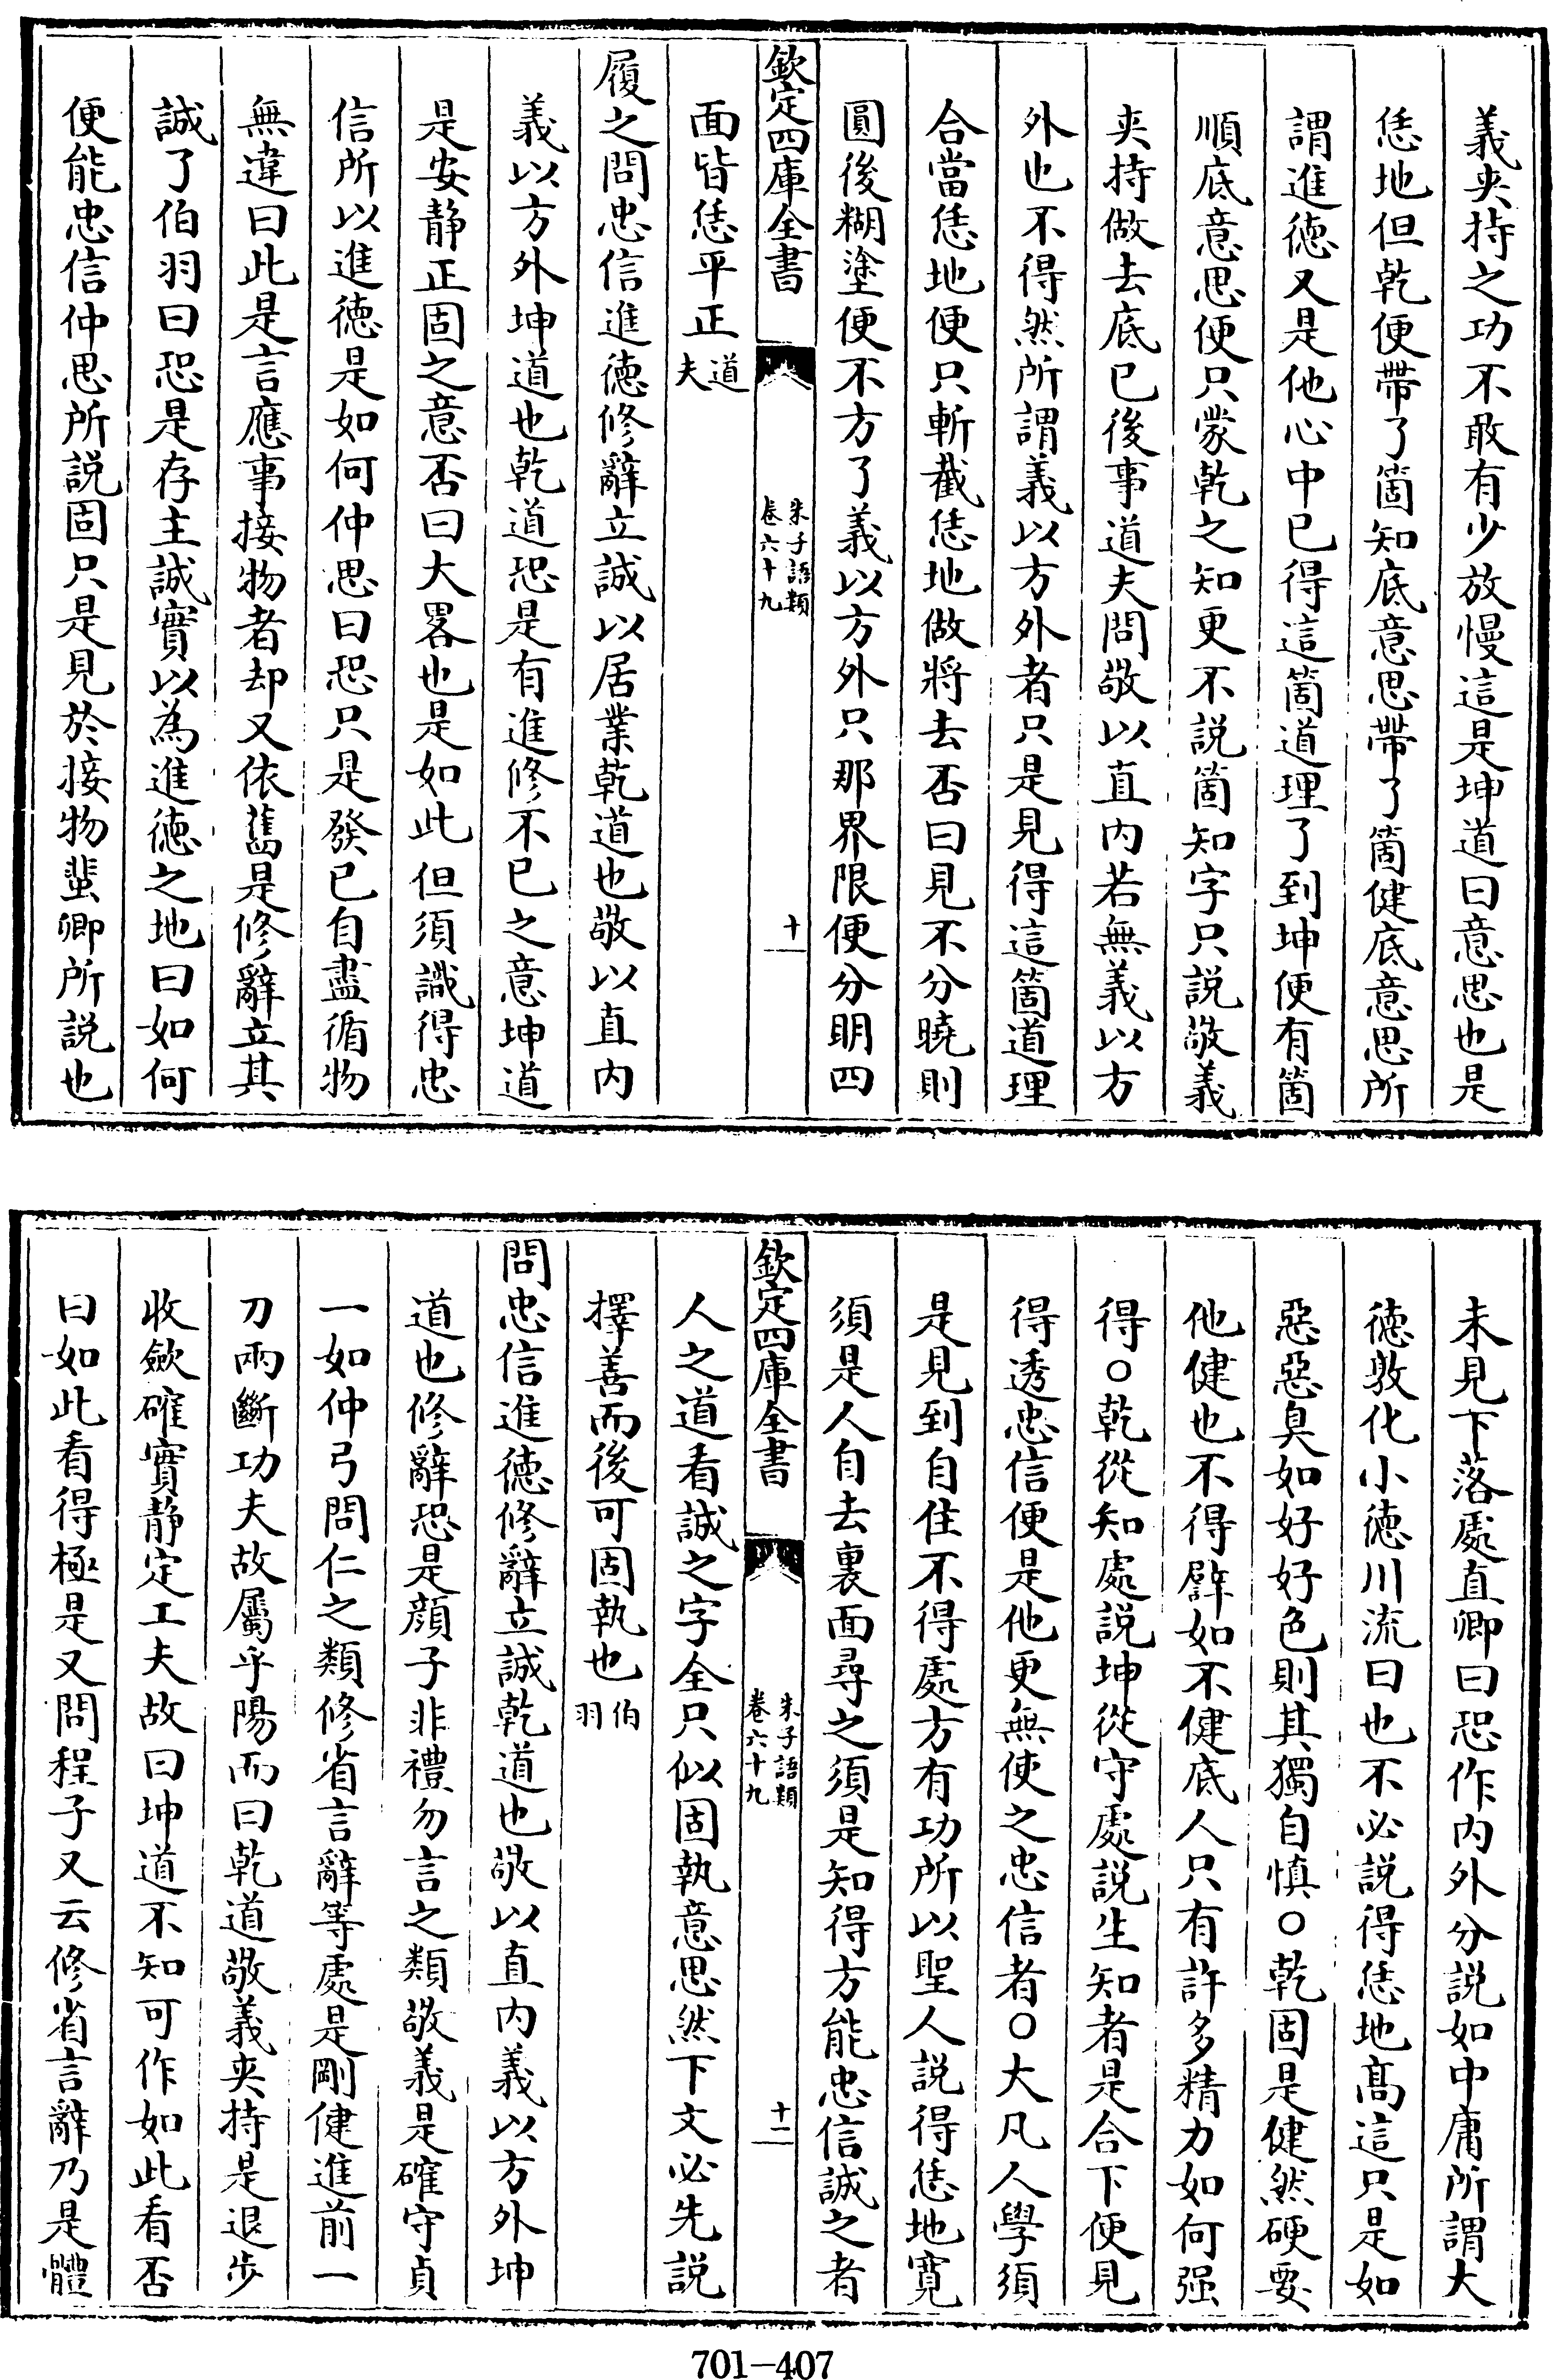 義夾持之功不敢有少放慢這是坤道曰意思也是
恁地但乾便帶了箇知底意思帶了箇健底意思所
謂進徳又是他心中已得這箇道理了到坤便有箇
順底意思便只蒙乾之知更不説箇知字只説敬義
夾持做去底已後事道夫問敬以直内若無義以方
外也不得然所謂義以方外者只是見得這箇道理
合當恁地便只斬截恁地做將去否曰見不分曉則
圓後糊塗便不方了義以方外只那界限便分明四
欽定四庫全書
朱子語類
卷六十九
十一
面皆恁平正道夫
履之問忠信進徳修辭立誠以居業乾道也敬以直内
義以方外坤道也乾道恐是有進修不已之意坤道
是安静正固之意否曰大畧也是如此但須識得忠
信所以進徳是如何仲思曰恐只是發已自盡循物
無違曰此是言應事接物者却又依舊是修辭立其
誠了伯羽曰恐是存主誠實以為進徳之地曰如何
便能忠信仲思所説固只是見於接物蜚卿所説也
未見下落處直卿曰恐作内外分説如中庸所謂大
徳敦化小徳川流曰也不必説得恁地髙這只是如
惡惡臭如好好色則其獨自慎○乾固是健然硬要
他健也不得譬如不健底人只有許多精力如何强
得○乾從知處説坤從守處説生知者是合下便見
得透忠信便是他更無使之忠信者○大凡人學須
是見到自住不得處方有功所以聖人説得恁地寛
須是人自去裏面尋之須是知得方能忠信誠之者
欽定四庫全書
朱子語類
卷六十九
十二
人之道看誠之字全只似固執意思然下文必先説
擇善而後可固執也伯羽
問忠信進徳修辭立誠乾道也敬以直内義以方外坤
道也修辭恐是顔子非禮勿言之類敬義是確守貞
一如仲弓問仁之類修省言辭等處是剛健進前一
刀兩斷功夫故屬乎陽而曰乾道敬義夾持是退步
收斂確實静定工夫故曰坤道不知可作如此看否
曰如此看得極是又問程子又云修省言辭乃是體
701-407